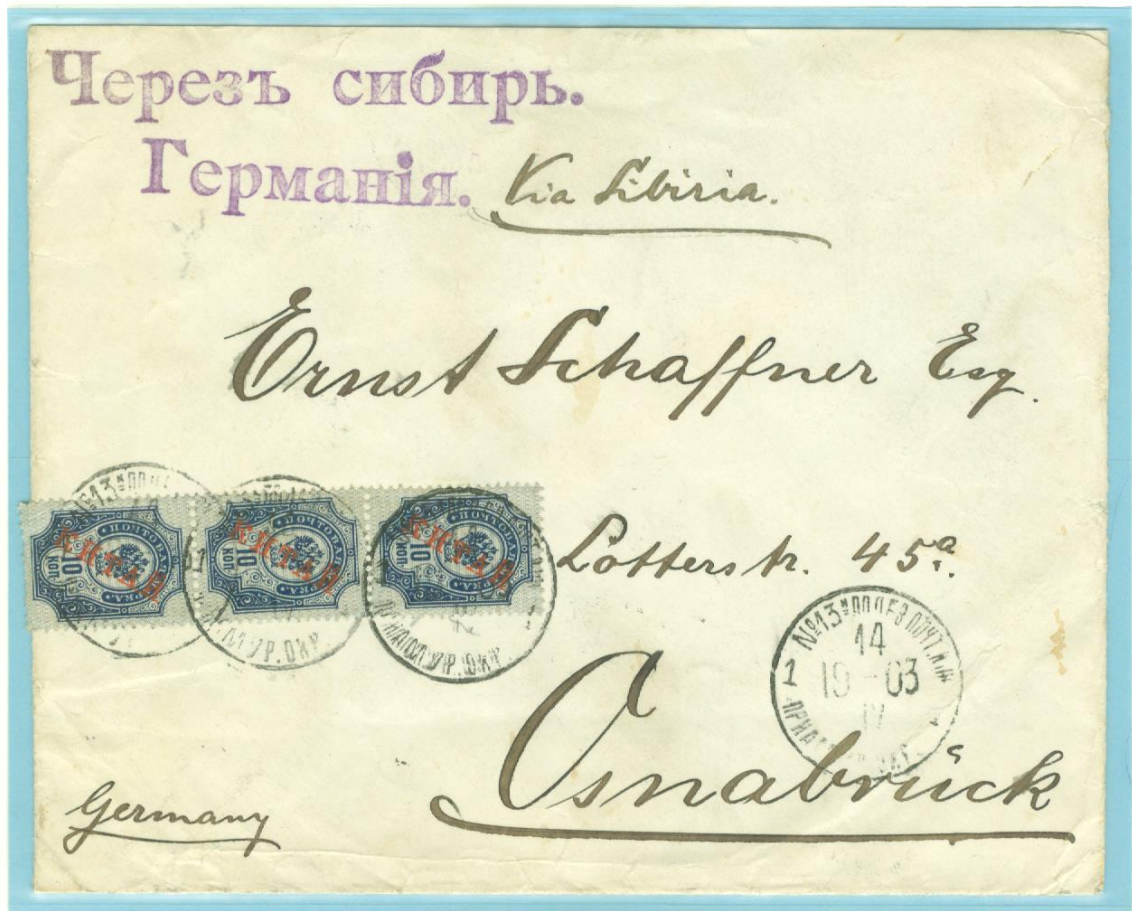 Черезъ сибирь.
Германія.
Via Sibiria.
Ernst Schaffner Esq.
Lotterstr. 45a.
Osnabrück
Germany
КИТАЙ
ПОЧТОВАЯ МАРКА
10 КОП
КИТАЙ
ПОЧТОВАЯ МАРКА
10 КОП
КИТАЙ
ПОЧТОВАЯ МАРКА
10 КОП
№13
№13
ПРИАМУР.ОКР
№13
14
1
19-03
IV